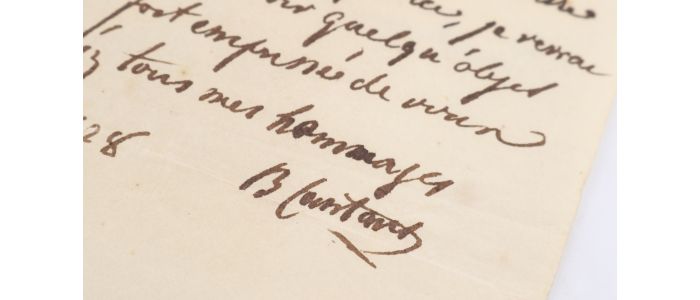 je verrai
quelqu'objet
fort empressée de vous
tous mes hommages
28
B Constant